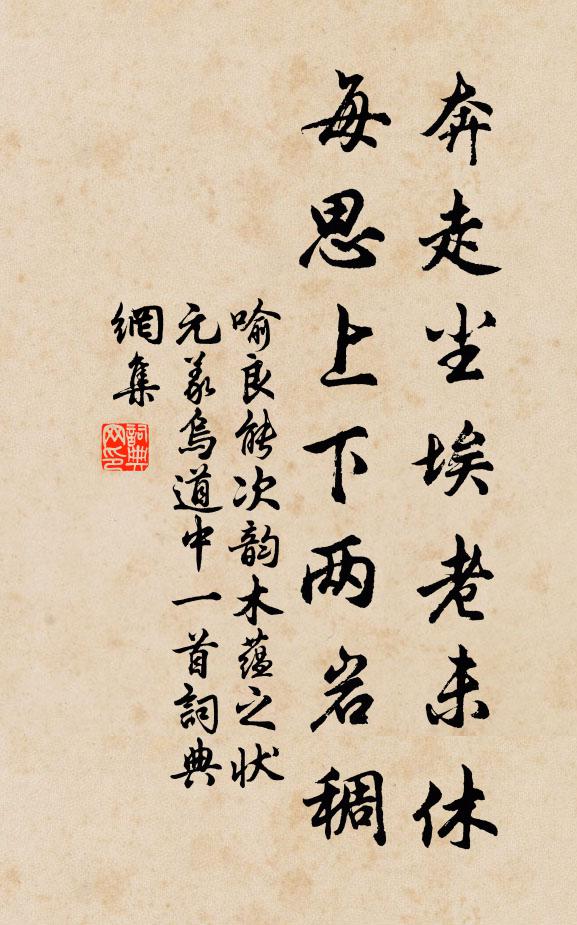 奔走尘埃老未休
每思上下两岩稠
喻良能次韵木蕴之状
元义乌道中一首词典
網集
詞典網印